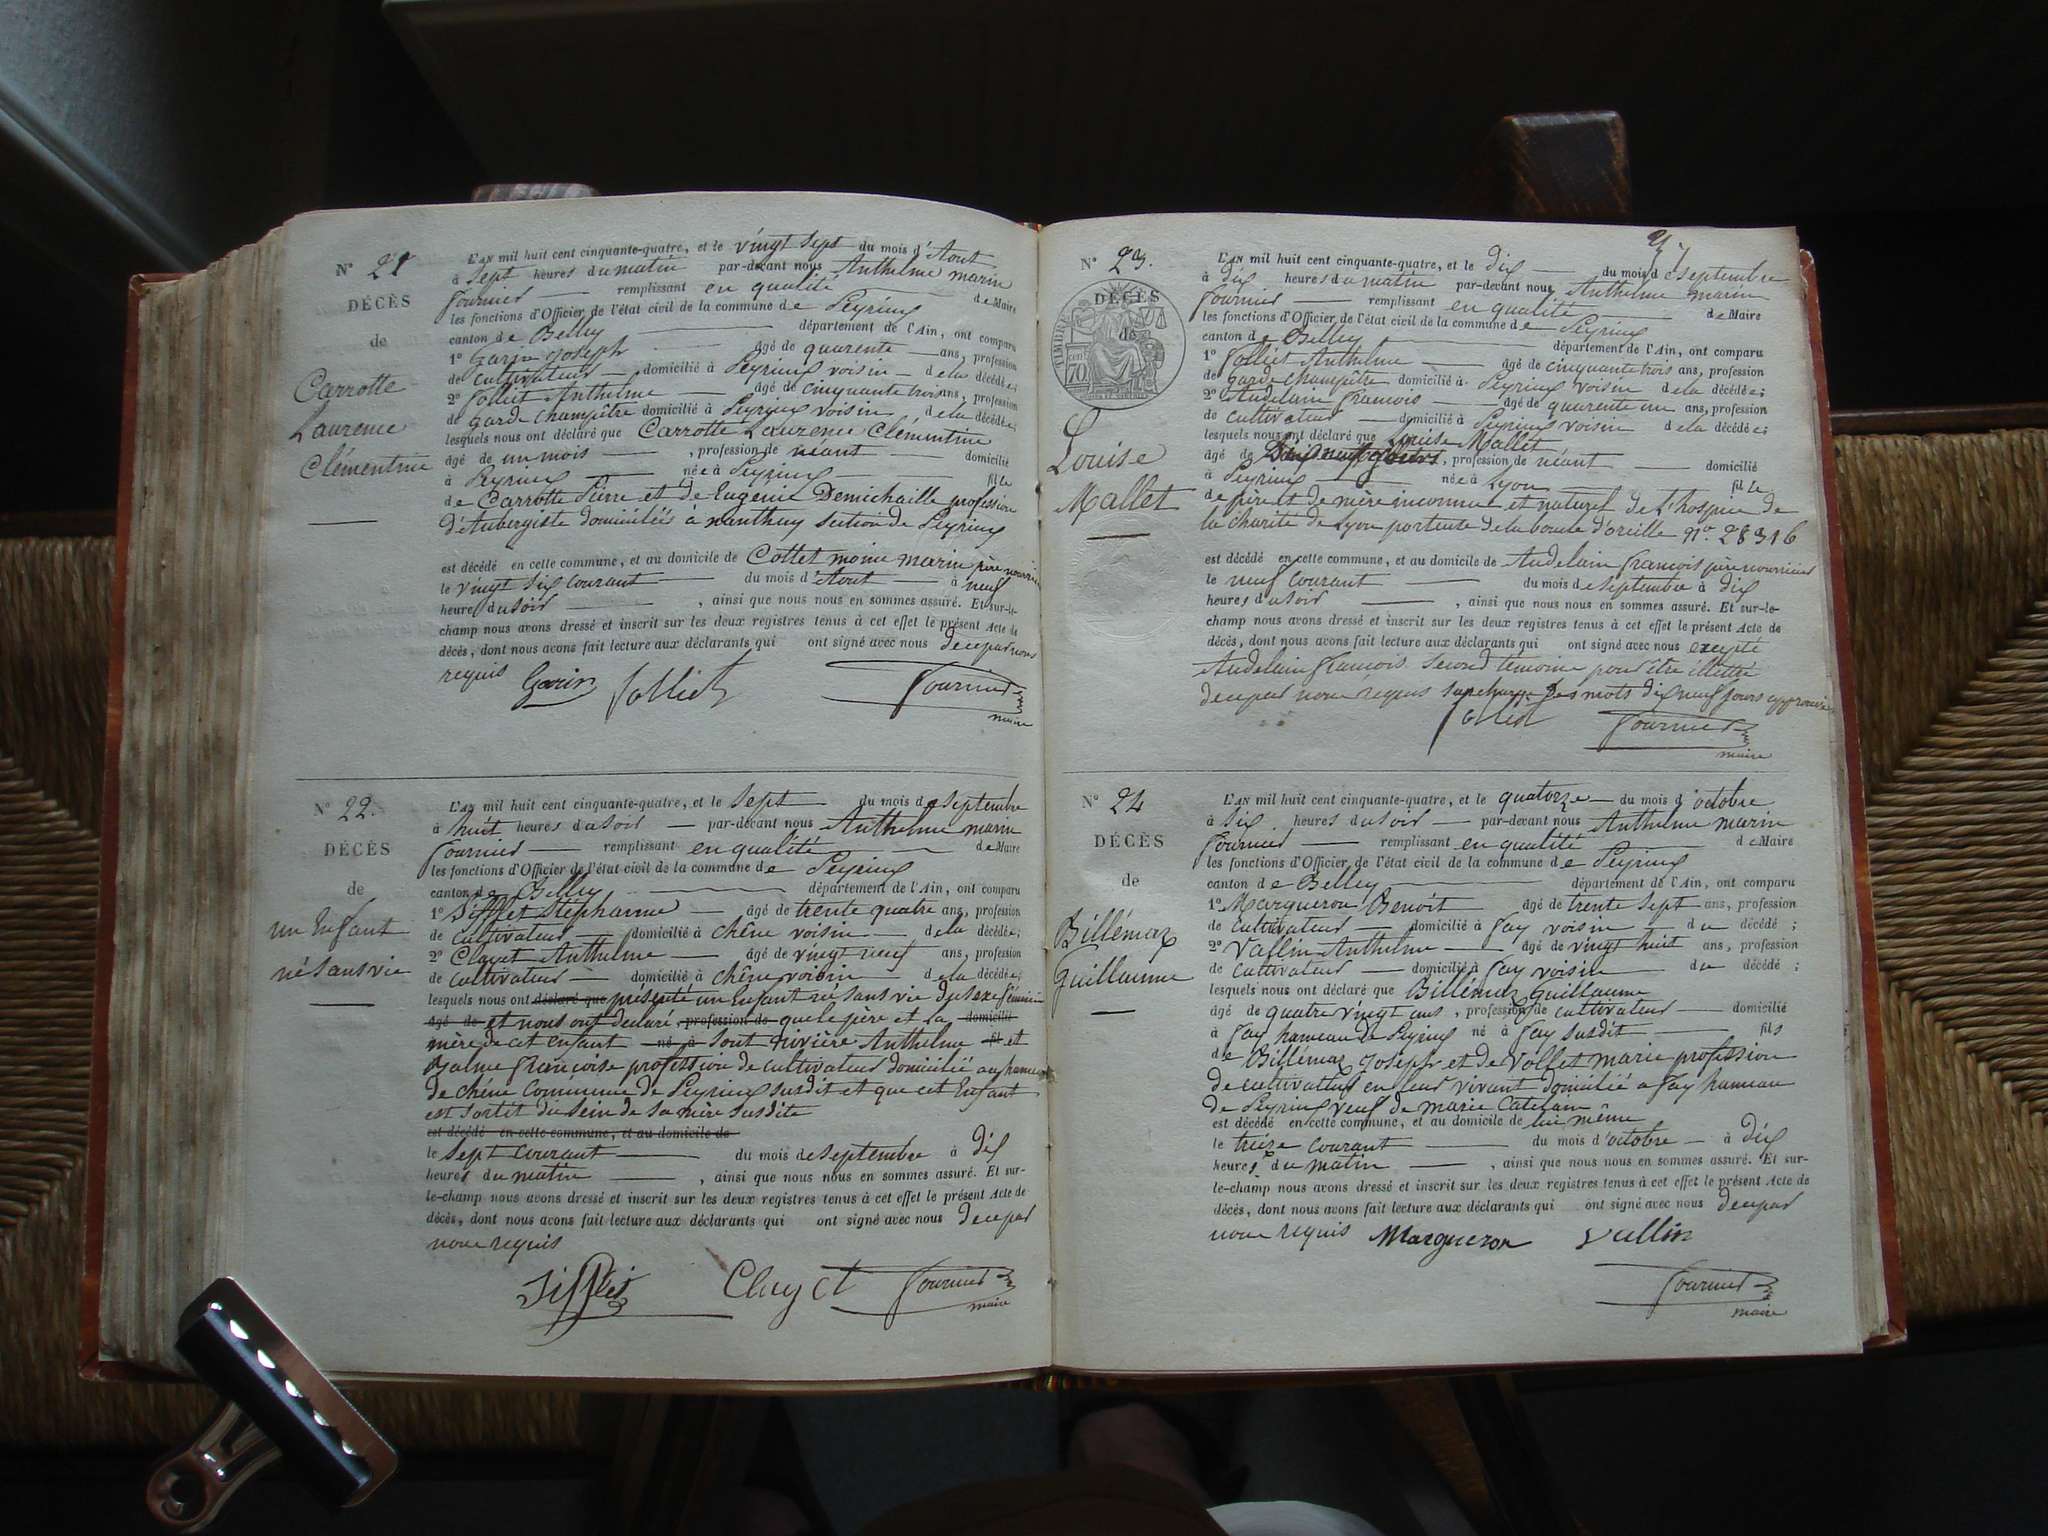 N° 21
DÉCÈS
de
Carrotte
Laurence
Clémentine
L'AN mil huit cent cinquante-quatre, et le vingt sept du mois d'Aout
à sept heures du matin par-devant nous Anthelme marin
fournier remplissant en qualité de Maire
les fonctions d'Officier de l'état civil de la commune de Peyrieu
canton de Belley département de l'Ain, ont comparu
1° Garin Joseph agé de quarente ans, profession
de cultivateur domicilié à Peyrieu voisin de la décédée;
2° Jolliet Anthelme agé de cinquante trois ans, profession
de garde champêtre domicilié à Peyrieu voisin de la décédée;
lesquels nous ont déclaré que Carrotte Laurence Clémentine
agé de un mois, profession de néant domicilié
à Peyrieu née à Peyrieu fille
de Carrotte Pierre et de Eugénie Demichaille profession
d'Aubergiste domiciliés à nanthuy section de Peyrieu
est décédé en cette commune, et au domicile de Cottet moine marin père nourricier
le vingt six courant du mois d'Aout à neuf
heures du soir, ainsi que nous nous en sommes assuré. Et sur-le-
champ nous avons dressé et inscrit sur les deux registres tenus à cet effet le présent Acte de
décès, dont nous avons fait lecture aux déclarants qui ont signé avec nous de ce par nous
requis Garin Jolliet Fournier
maire
N° 22.
DÉCÈS
de
un Enfant
né sans vie
L'AN mil huit cent cinquante-quatre, et le sept du mois de septembre
à huit heures du soir par-devant nous Anthelme marin
fournier remplissant en qualité de Maire
les fonctions d'Officier de l'état civil de la commune de Peyrieu
canton de Belley département de l'Ain, ont comparu
1° Sifflet Stéphanne agé de trente quatre ans, profession
de cultivateur domicilié à chêne voisin de la décédée;
2° Clayet Anthelme agé de vingt neuf ans, profession
de cultivateur domicilié à chêne voisin de la décédée;
lesquels nous ont déclaré que présenté un Enfant né sans vie du sexe féminin
agé de et nous ont déclaré profession de que le père et la domicilié
mère de cet enfant né à sont Rivière Anthelme fil et
Balme françoise profession de cultivateur domicilié au hameau
de chêne commune de Peyrieu susdit et que cet Enfant
est sortit du sein de sa mère susdite
est décédé en cette commune, et au domicile de
le sept courant du mois de septembre à dix
heures du matin, ainsi que nous nous en sommes assuré. Et sur-
le-champ nous avons dressé et inscrit sur les deux registres tenus à cet effet le présent Acte de
décès, dont nous avons fait lecture aux déclarants qui ont signé avec nous de ce par
nous requis
Sifflet Clayet Fournier
maire
N° 23.
DÉCÈS
de
TIMBRE
70
Louise
Mallet
L'AN mil huit cent cinquante-quatre, et le dix du mois de septembre
à dix heures du matin par-devant nous Anthelme marin
fournier remplissant en qualité de Maire
les fonctions d'Officier de l'état civil de la commune de Peyrieu
canton de Belley département de l'Ain, ont comparu
1° Jolliet Anthelme agé de cinquante trois ans, profession
de garde champêtre domicilié à Peyrieu voisin de la décédée;
2° Andelain francois agé de quarente un ans, profession
de cultivateur domicilié à Peyrieu voisin de la décédée;
lesquels nous ont déclaré que Louise Mallet
agé de dix neuf jours, profession de néant domicilié
à Peyrieu née à Lyon fille
de père et de mère inconnue et naturel de l'hospice de
la charité de Lyon porteuse de la boucle d'oreille n° 28316
est décédé en cette commune, et au domicile de Andelain francois père nourricier
le neuf courant du mois de septembre à dix
heures du soir, ainsi que nous nous en sommes assuré. Et sur-le-
champ nous avons dressé et inscrit sur les deux registres tenus à cet effet le présent Acte de
décès, dont nous avons fait lecture aux déclarants qui ont signé avec nous excepté
Andelain francois second témoins pour être illettré
de ce par nous requis surcharge des mots dix neuf jours approuvée
Jolliet Fournier
maire
N° 24
DÉCÈS
de
Billémaz
Guillaume
L'AN mil huit cent cinquante-quatre, et le quatorze du mois d'octobre
à six heures du soir par-devant nous Anthelme marin
fournier remplissant en qualité de Maire
les fonctions d'Officier de l'état civil de la commune de Peyrieu
canton de Belley département de l'Ain, ont comparu
1° Margueron Benoit agé de trente sept ans, profession
de cultivateur domicilié à fay voisin du décédé;
2° Vallin Anthelme agé de vingt huit ans, profession
de cultivateur domicilié à fay voisin du décédé;
lesquels nous ont déclaré que Billémaz Guillaume
agé de quatre vingt ans, profession de cultivateur domicilié
à fay hameau de Peyrieu né à fay susdit fils
de Billémaz Joseph et de Vollet marie profession
de cultivateur en leur vivant domicilié a fay hameau
de Peyrieu veuf de marie Catelain
est décédé en cette commune, et au domicile de lui même
le treize courant du mois d'octobre à dix
heures du matin, ainsi que nous nous en sommes assuré. Et sur-
le-champ nous avons dressé et inscrit sur les deux registres tenus à cet effet le présent Acte de
décès, dont nous avons fait lecture aux déclarants qui ont signé avec nous de ce par
nous requis Margueron Vallin
Fournier
maire